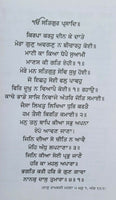 ੴ ਸਤਿਗੁਰ ਪ੍ਰਸਾਦਿ॥
ਕਿਰਪਾ ਕਰਹੁ ਦੀਨ ਕੇ ਦਾਤੇ
ਮੇਰਾ ਗੁਣੁ ਅਵਗਣੁ ਨ ਬੀਚਾਰਹੁ ਕੋਈ॥
ਮਾਟੀ ਕਾ ਕਿਆ ਧੋਪੈ ਸੁਆਮੀ
ਮਾਣਸ ਕੀ ਗਤਿ ਏਹੀ॥੧॥
ਮੇਰੇ ਮਨ ਸਤਿਗੁਰੁ ਸੇਵਿ ਸੁਖੁ ਹੋਈ॥
ਜੋ ਇਛਹੁ ਸੋਈ ਫਲੁ ਪਾਵਹੁ
ਫਿਰਿ ਦੂਖੁ ਨ ਵਿਆਪੈ ਕੋਈ॥੧॥ ਰਹਾਉ॥
ਕਾਚੇ ਭਾਡੇ ਸਾਜਿ ਨਿਵਾਜੇ ਅੰਤਰਿ ਜੋਤਿ ਸਮਾਈ॥
ਜੈਸਾ ਲਿਖਤੁ ਲਿਖਿਆ ਧੁਰਿ ਕਰਤੈ
ਹਮ ਤੈਸੀ ਕਿਰਤਿ ਕਮਾਈ॥੨॥
ਮਨੁ ਤਨੁ ਥਾਪਿ ਕੀਆ ਸਭੁ ਅਪਨਾ
ਏਹੋ ਆਵਣ ਜਾਣਾ॥
ਜਿਨਿ ਦੀਆ ਸੋ ਚਿਤਿ ਨ ਆਵੈ
ਮੋਹਿ ਅੰਧੁ ਲਪਟਾਣਾ॥੩॥
ਜਿਨਿ ਕੀਆ ਸੋਈ ਪ੍ਰਭੁ ਜਾਣੈ
ਹਰਿ ਕਾ ਮਹਲੁ ਅਪਾਰਾ॥
ਭਗਤਿ ਕਰੀ ਹਰਿ ਕੇ ਗੁਣ ਗਾਵਾ
ਨਾਨਕ ਦਾਸੁ ਤੁਮਾਰਾ॥੪॥